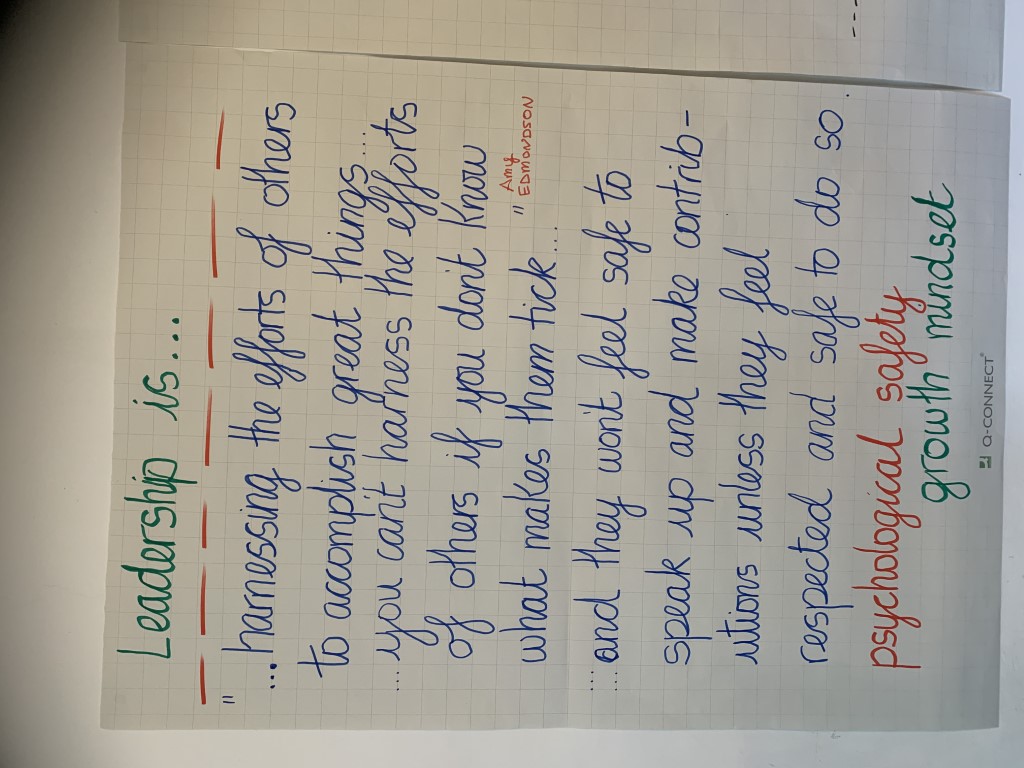 Leadership is...
"
...harnessing the efforts of others
to accomplish great things...
... you can't harness the efforts
of others if you don't know
what makes them tick... "
Amy
EDMONDSON
... and they won't feel safe to
speak up and make contrib-
utions unless they feel
respected and safe to do so.
psychological safety
growth mindset
Q-CONNECT®